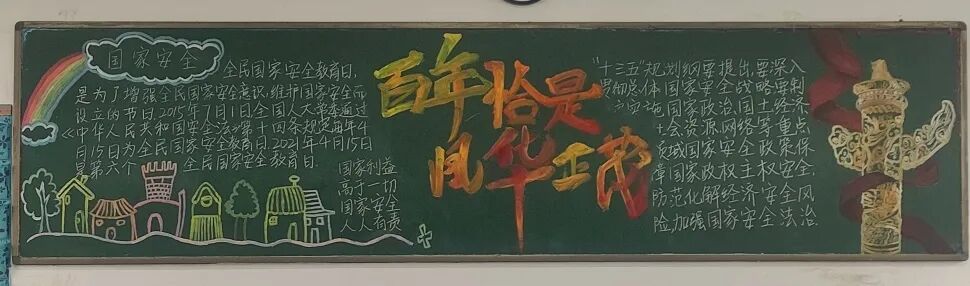 国家安全
全民国家安全教育日,
是为了增强全民国家安全意识,维护国家安全而
设立的节日.2015年7月1日全国人大常委通过
《中华人民共和国安全法》第十四条规定每年4
月15日为全民国家安全教育日.2021年4月15日
是第六个 全民国家安全教育日.
国家利益
高于一切
国家安全
人人有责
百年恰是
风华正茂
"十三五"规划纲要提出,要深入
贯彻总体国家安全战略要制
定实施国家政治,国土经济
社会,资源网络等重点
领域国家安全政策保
障国家政权主权安全,
防范化解经济安全风
险,加强国家安全法治.